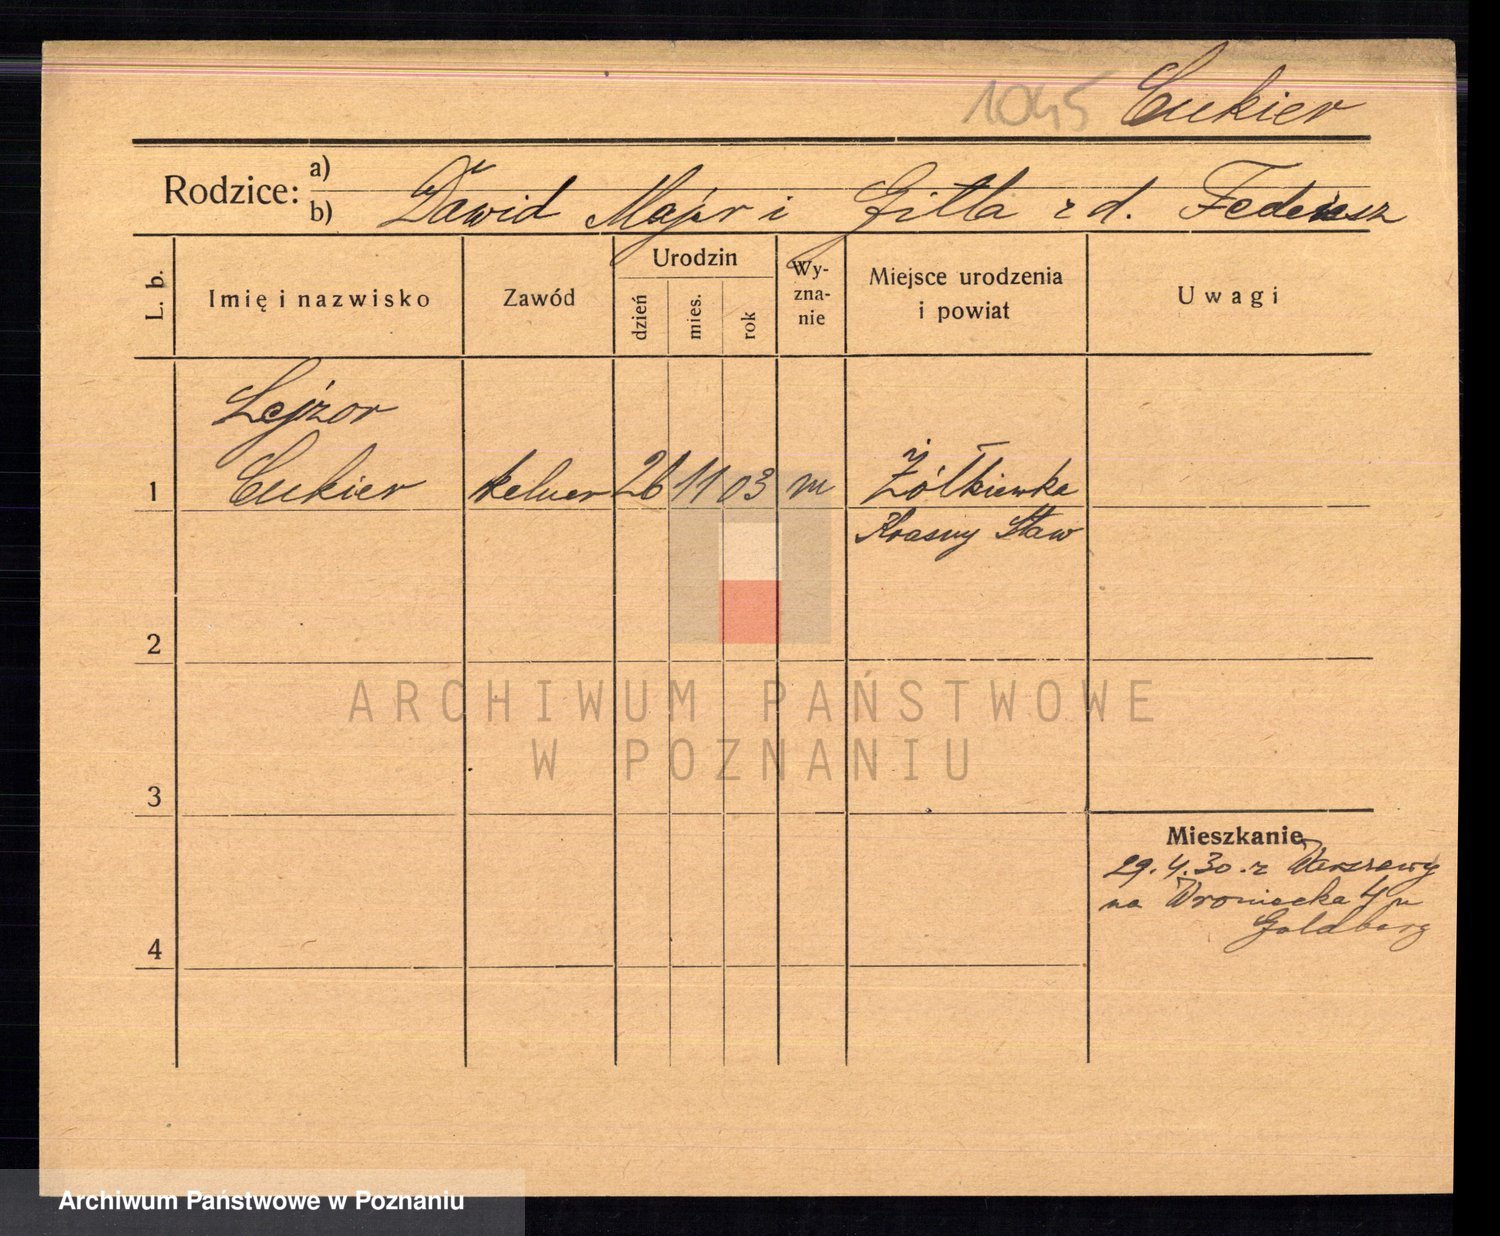 1045 Cukier
Rodzice: a)
b) Dawid Majer i Gitla z d. Federsz
L. b.
Imię i nazwisko
Zawód
Urodzin
dzień
mies.
rok
Wy-
zna-
nie
Miejsce urodzenia
i powiat
Uwagi
Lejzor
1 Cukier kelner 26 11 03 m Żółkiewka
Krasny Staw
2
3
4
Mieszkanie
29.4.30. z Warszawy
na Wroniecka 4 pu
Goldberg
ARCHIWUM PAŃSTWOWE
W POZNANIU
Archiwum Państwowe w Poznaniu